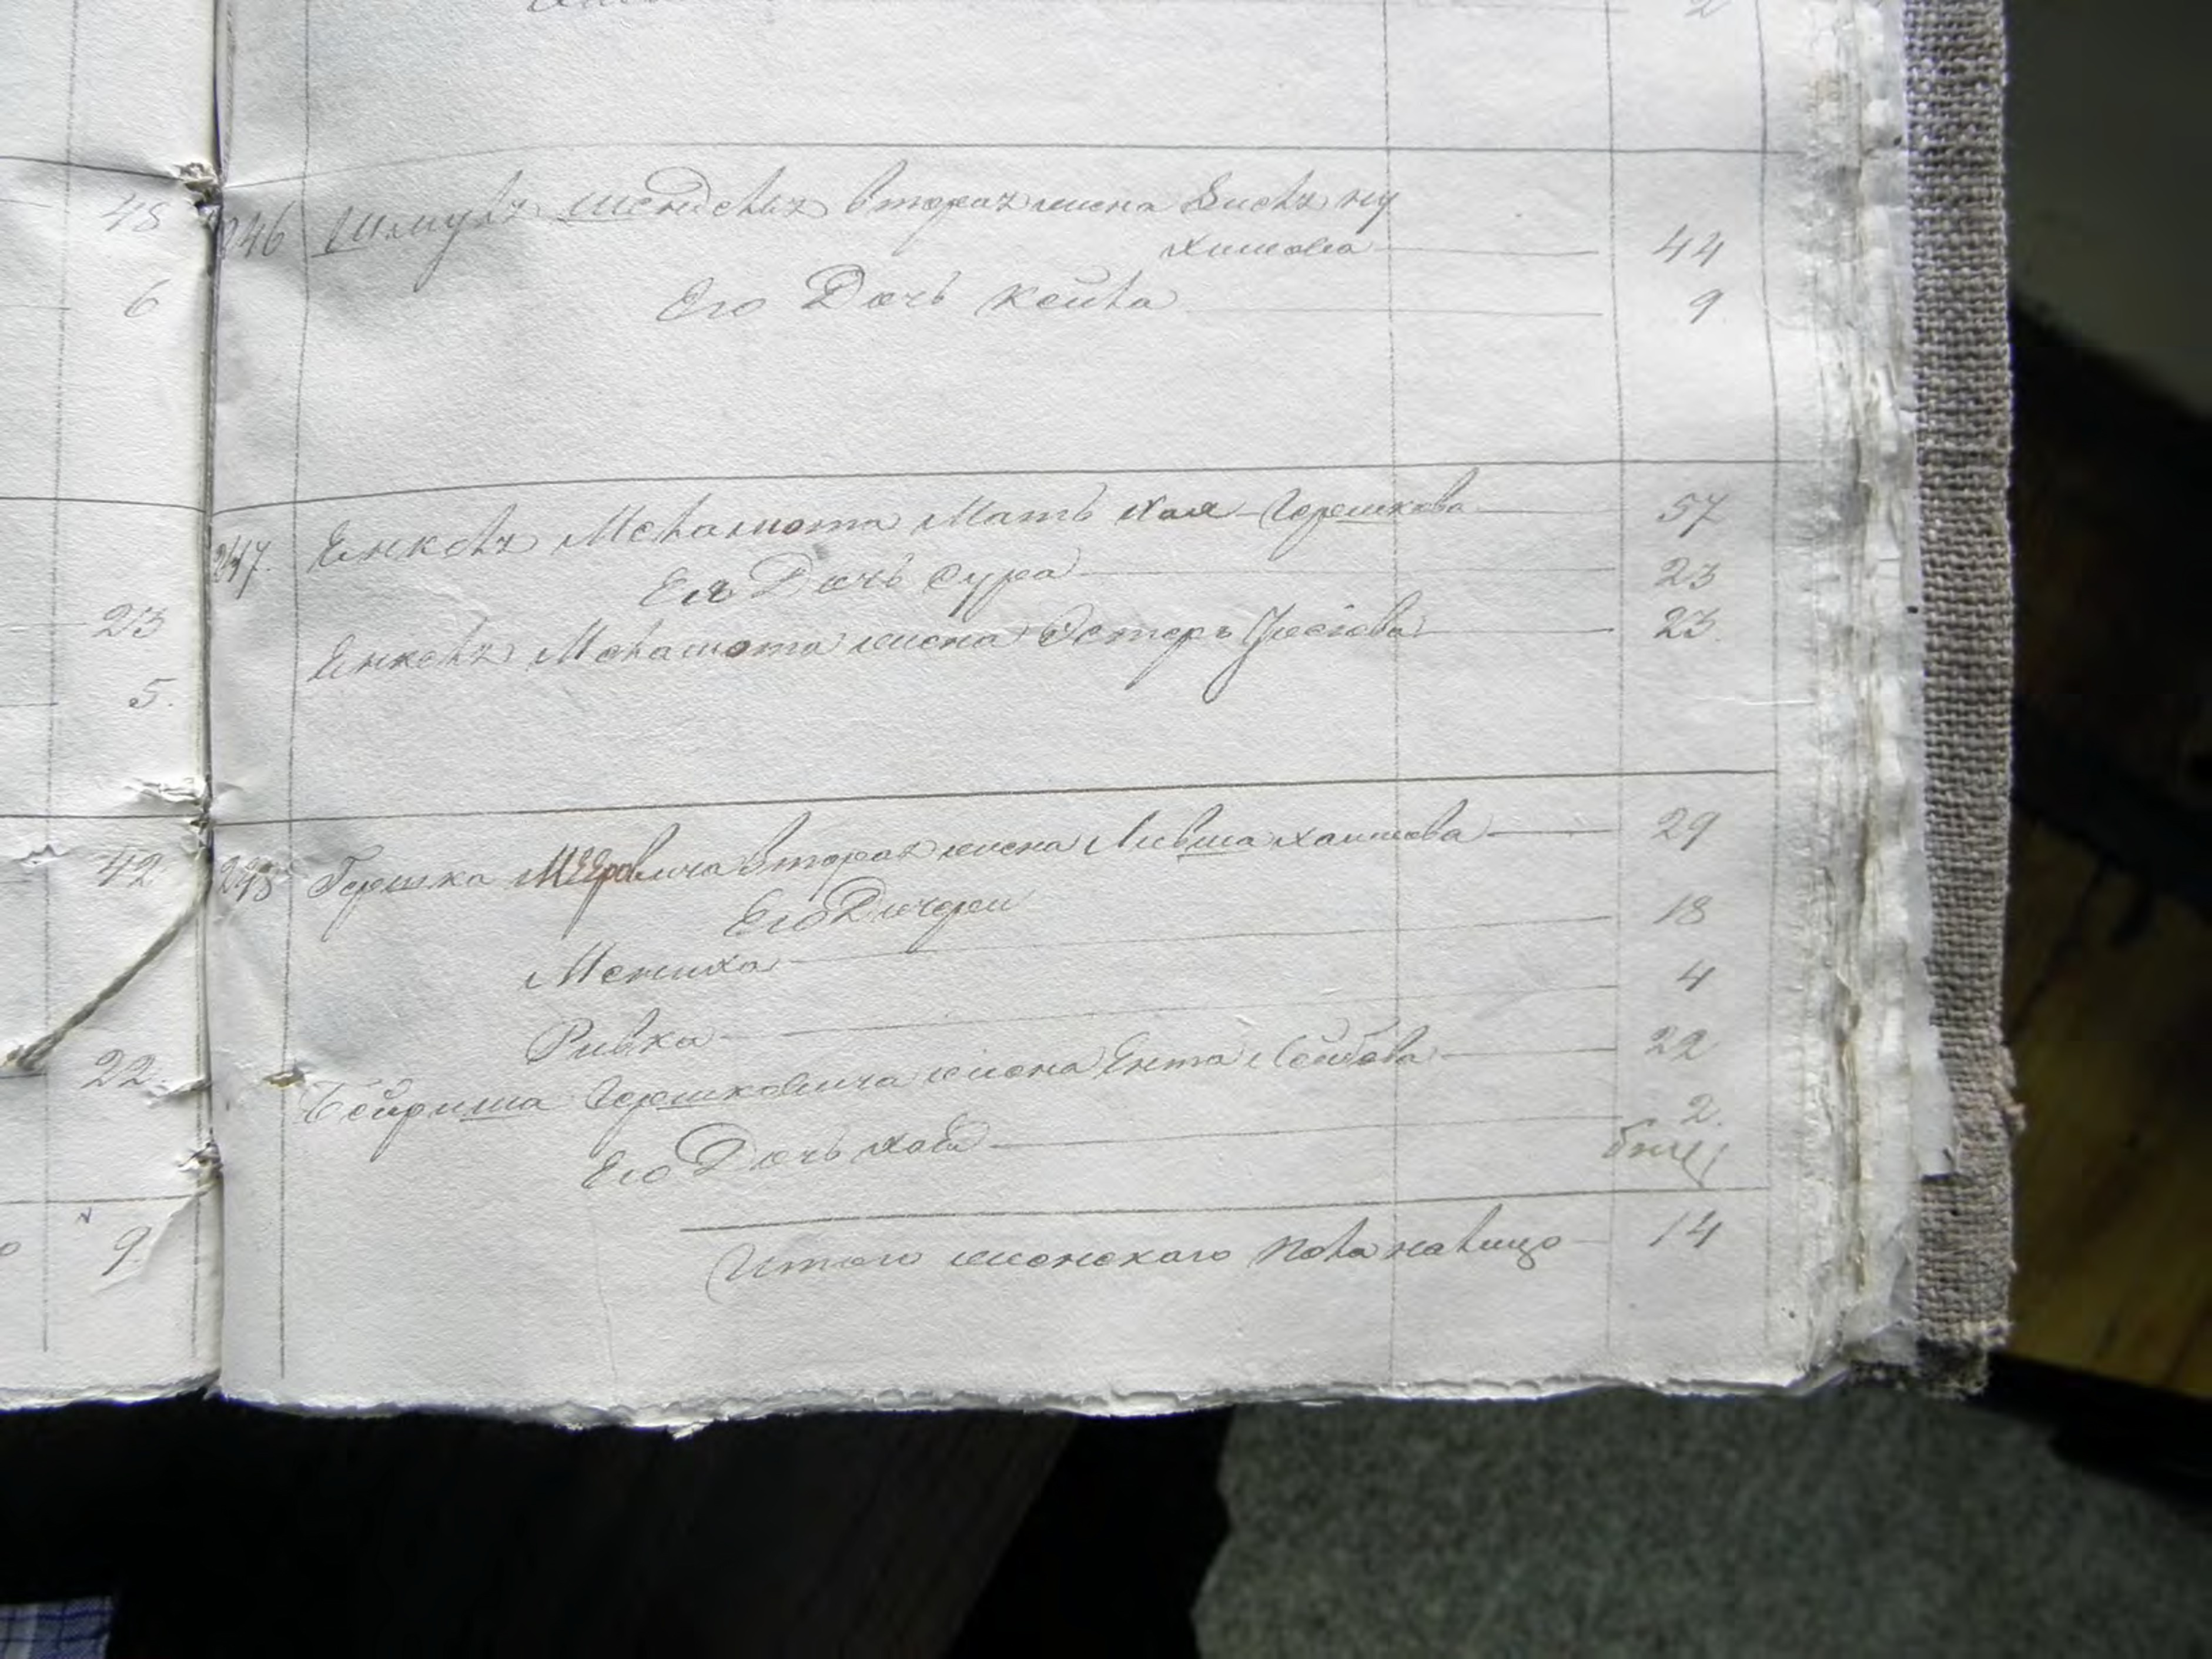 2
48
6
23
5.
42
22
9.
246 Шмуля Менделя вторая жена Бейля ну
химова 44
Его Дочь Кейла 9
247. Янкеля Меламота Мать Хая Гершкова 57
Ея Дочь Сура 23
Янкеля Меламота жена Эстеръ 23.
248 Гершка Мееровича вторая жена Ливша Хаимова 29
Его Дочери
Мениха 18
Ривка 4
Бейриша Гершковича жена Ента Лейбова 22
Его Дочь Хая 2.
Итого женскаго пола налицо 14